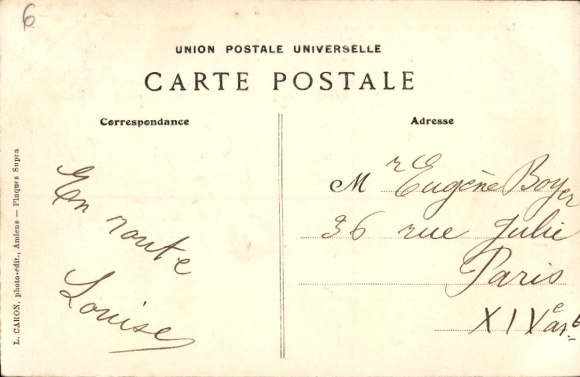 6
UNION POSTALE UNIVERSELLE
CARTE POSTALE
Correspondance
Adresse
En route
Louise
Mr Eugène Boyer
36 rue Julie
Paris
XIVe arrt
L. CARON, photo-édit., Amiens — Plaques Supra